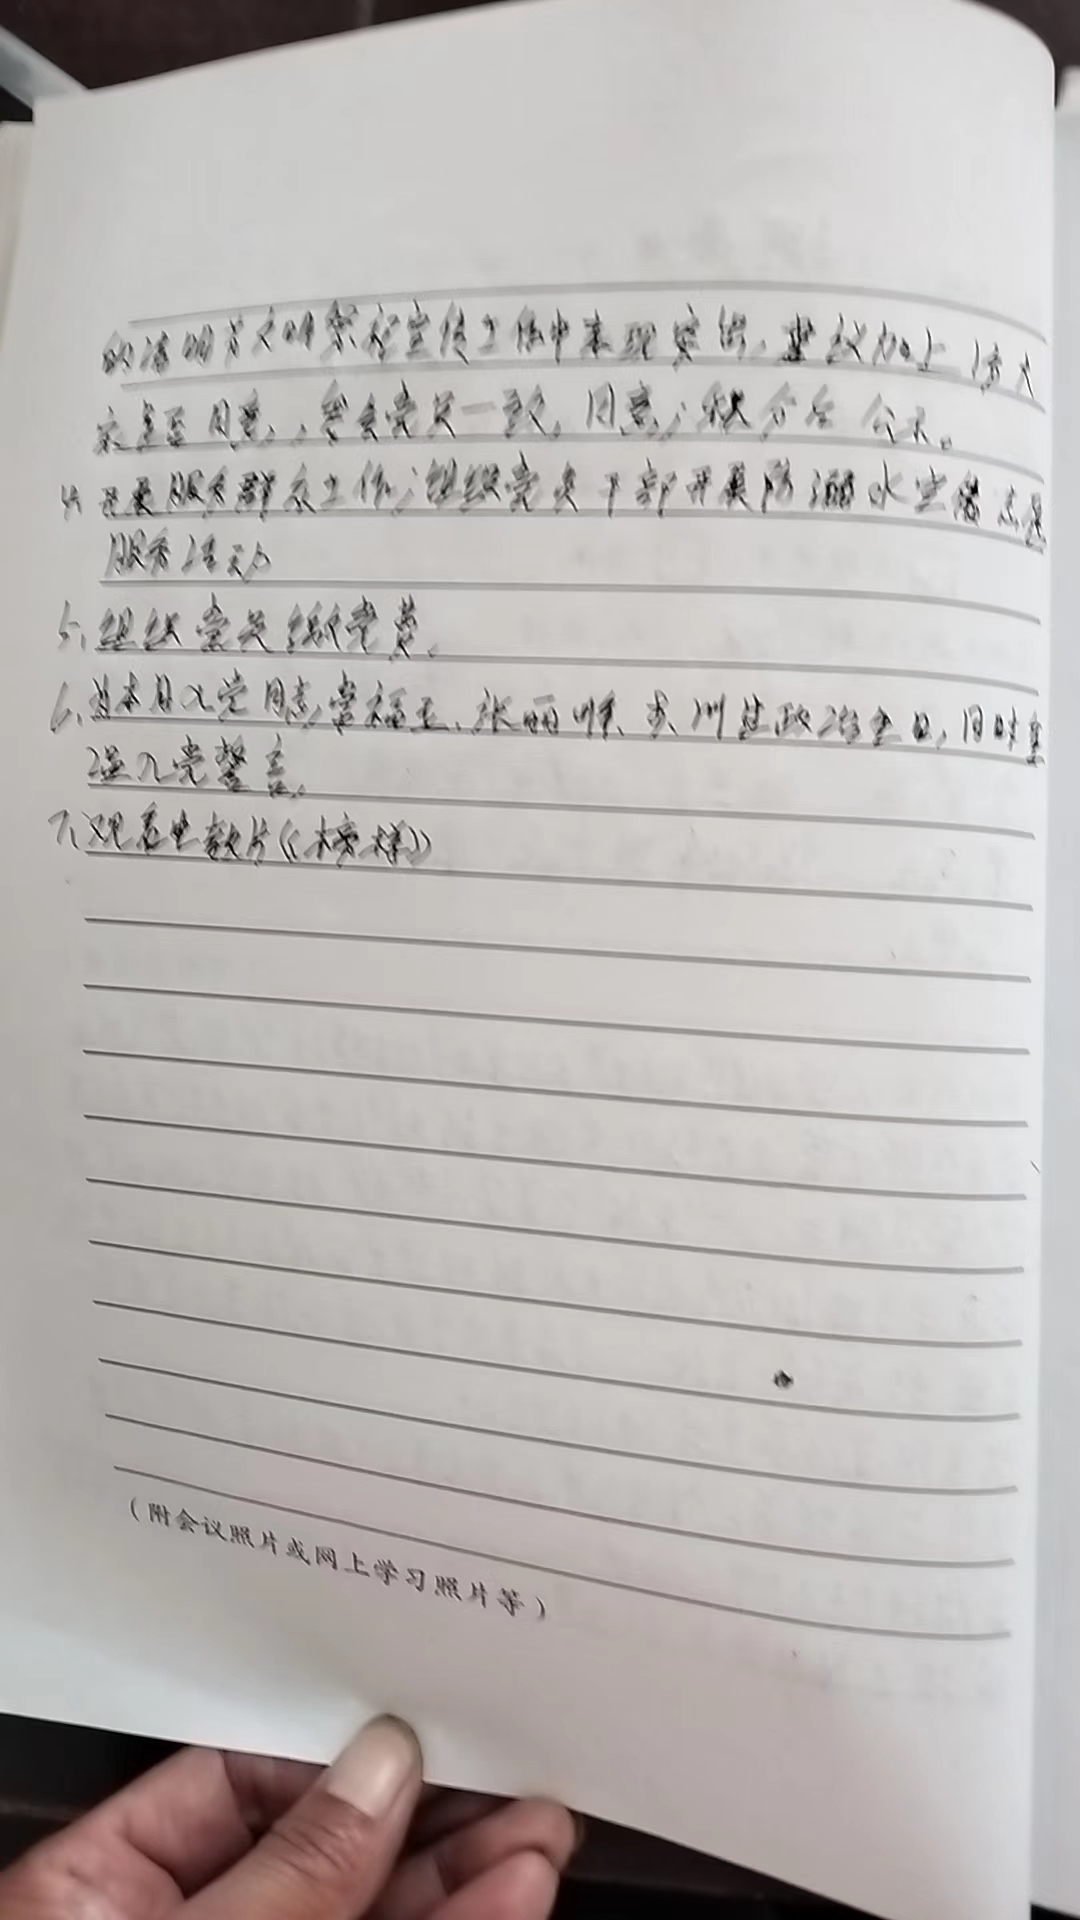 的清明节文明祭祀宣传工作中表现突出，建议加上1分大
家是否同意，参会党员一致，同意；积分后公示。
4、开展服务群众工作；组织党员干部开展防溺水宣传志愿
服务活动
5、组织党员缴党费。
6、为本月入党同志 张丽 过政治生日，同时重
温入党誓言。
7、观看电教片《榜样》
（附会议照片或网上学习照片等）